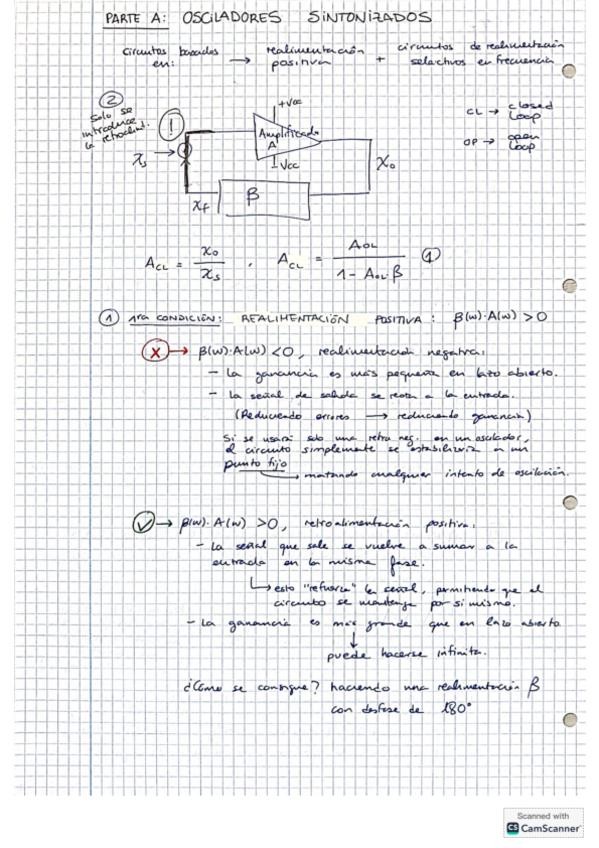 PARTE A: OSCILADORES SINTONIZADOS
circuitos basados en: → realimentación positiva + circuitos de realimentación selectivos en frecuencia
②
Solo se
introduce
la retroalim.
!
+Vcc
Amplificado
A
-Vcc
Xs
Xo
Xf
β
CL → closed loop
OP → open loop
ACL = Xo / Xs , ACL = AOL / 1 - AOL·β ①
① 1ra CONDICIÓN: REALIMENTACIÓN POSITIVA: β(ω)·A(ω) > 0
X → β(ω)·A(ω) < 0, realimentación negativa:
- la ganancia es más pequeña en lazo abierto.
- la señal de salida se resta a la entrada.
(Reduciendo errores → reduciendo ganancia)
Si se usara solo una retro neg. en un oscilador,
el circuito simplemente se estabilizaría en un
punto fijo
→ matando cualquier intento de oscilación.
✓ → β(ω)·A(ω) > 0, retroalimentación positiva:
- La señal que sale se vuelve a sumar a la
entrada en la misma fase.
→ esto "refuerza" la señal, permitiendo que el
circuito se mantenga por si mismo.
- La ganancia es más grande que en lazo abierto
↓
puede hacerse infinita.
¿Cómo se consigue? haciendo una realimentación β
con desfase de 180°
Scanned with
CS CamScanner